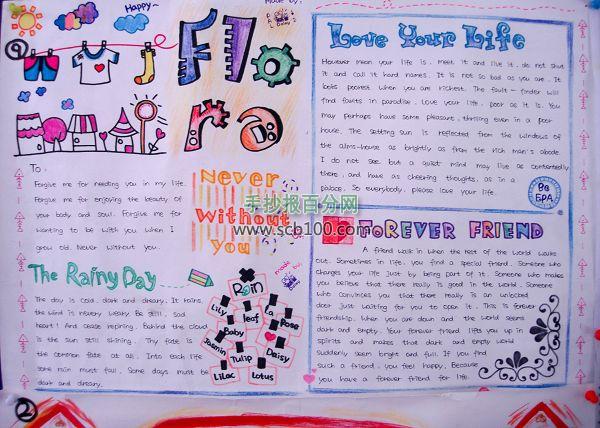 1
Happy~
made by:
Daisy
Flo
ra
To:
Forgive me for needing you in my life.
Forgive me for enjoying the beauty of
your body and soul. Forgive me for
wanting to be with you when I
grow old. Never without you.
Never
Without
you
手抄报百分网
www.scb100.com
The Rainy Day
The day is cold, dark and dreary. It rains,
the wind is never weary. Be still, sad
heart! And cease repining. Behind the cloud
is the sun still shining. Thy fate is
the common fate of all. Into each life
some rain must fall. Some days must be
dark and dreary.
made by
Rain
Lily
leaf
La
Rose
Baby
Jasmin
Tulip
Daisy
Lilac
Lotus
Love Your Life
However mean your life is, meet it and live it. do not shut
it and call it hard names. It is not so bad as you are. It
looks poorest when you are richest. The fault-finder will
find faults in paradise. Love your life, poor as it is. You
may perhaps have some pleasant, thrilling even in a poor
house. The setting sun is reflected from the windows of
the alms-house as brightly as from the rich man's abode.
I do not see, but a quiet mind may live as contentedly
there, and have as cheering thoughts, as in a
palace. So everybody, please love your life.
FOREVER FRIEND
A friend walk in when the rest of the world walks
out. Sometimes in life, you find a special friend. Someone who
changes your life just by being part of it. Someone who makes
you believe that there really is good in the world. Someone
who convinces you that there really is an unlocked
door just waiting for you to open it. This is forever
friendship. When you are down and the world seems
dark and empty. Your forever friend lifts you up in
spirits and makes that dark and empty world
suddenly seem bright and full. If you find
such a friend, you feel happy. Because
you have a forever friend for life.
2